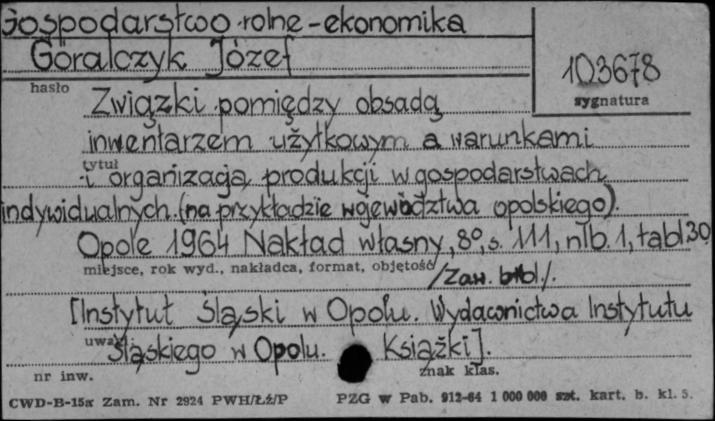 Gospodarstwo rolne - ekonomika
Góralczyk Józef
103678
hasło
sygnatura
Związki pomiędzy obsadą
inwentarzem użytkowym a warunkami
tytuł
i organizacją produkcji w gospodarstwach
indywidualnych. (na przykładzie województwa opolskiego).
Opole 1964 Nakład własny, 8°, s. 111, nlb. 1, tabl 30
miejsce, rok wyd., nakładca, format, objętość
/Zaw. bibl/.
[Instytut Śląski w Opolu. Wydawnictwa Instytutu
uwagi
Śląskiego w Opolu. Książki].
nr inw.
znak klas.
CWD-B-15x Zam. Nr 2924 PWH/Łź/P
PZG w Pab. 912-64 1 000 000 szt. kart. b. kl. 5.